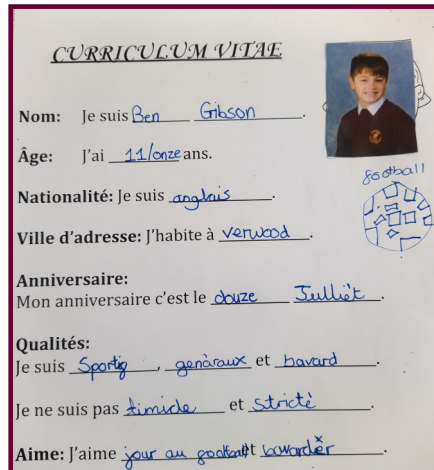 CURRICULUM VITAE
Nom: Je suis Ben Gibson.
football
Âge: J'ai 11/onze ans.
Nationalité: Je suis anglais.
Ville d'adresse: J'habite à verwood.
Anniversaire:
Mon anniversaire c'est le douze Jullièt.
Qualités:
Je suis Sportig, genàraux et bavard.
Je ne suis pas timide et strictè.
Aime: J'aime jour au football et bavardèr.